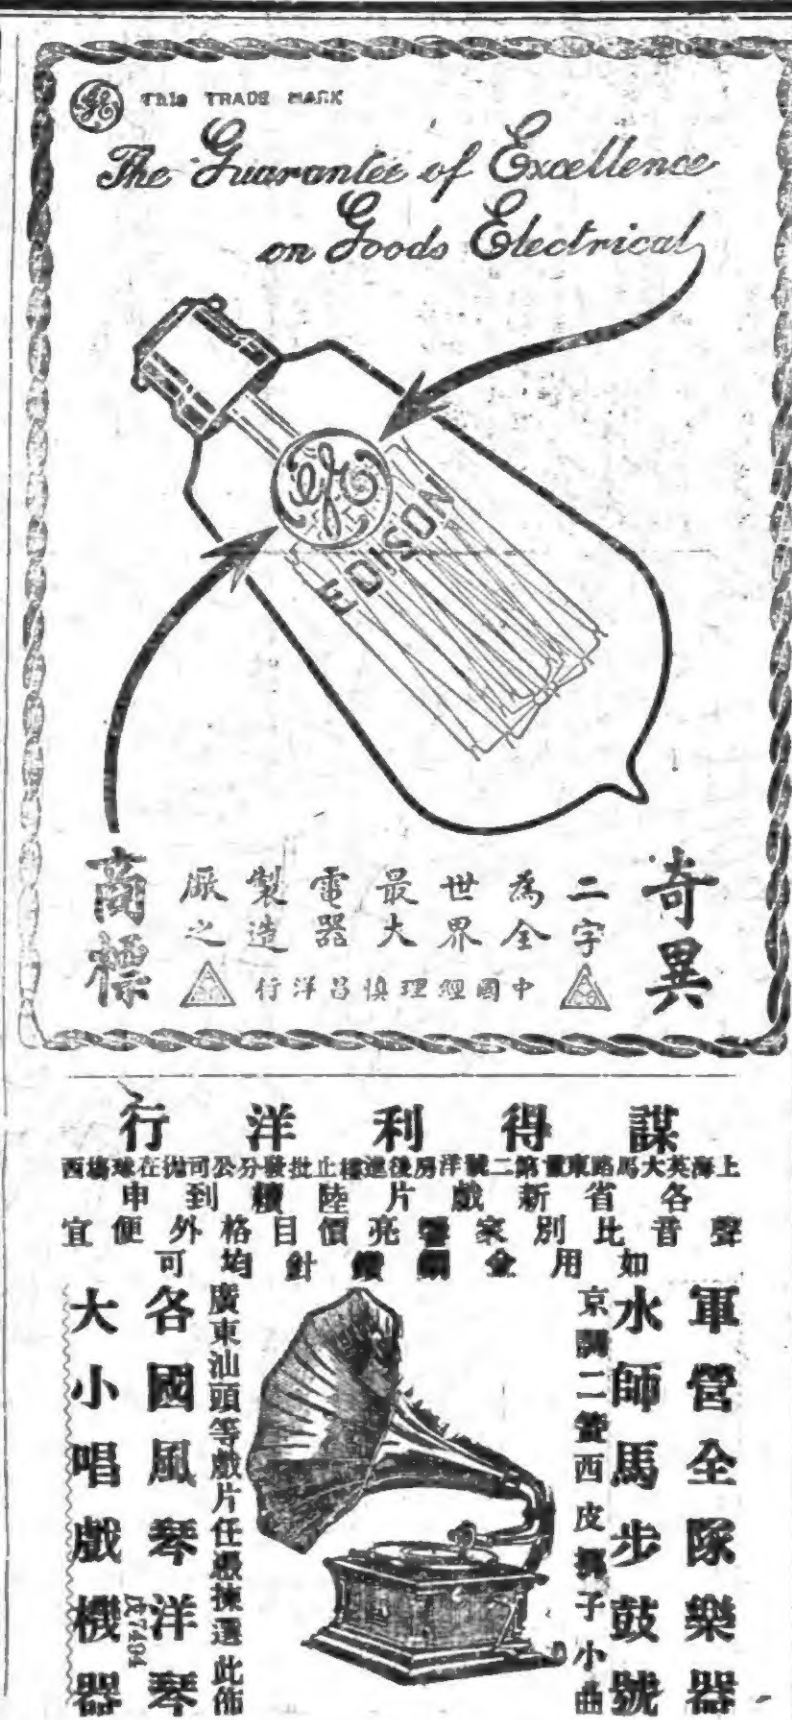 GE This TRADE MARK
The Guarantee of Excellence
on Goods Electrical
GE
EDISON
奇異
二字
為全
世界
最大
電器
製造
厰之
商標
中國經理慎昌洋行
謀得利洋行
上海英大馬路東首第二號洋房後進樓上批發分公司拋在球塲西
各省新戲片陸續到申
聲音比別家響亮價目格外便宜
如用金鋼鑽針均可
軍營全隊樂器
水師馬步鼓號
京調二簧西皮子小曲
廣東汕頭等戲片任憑揀選此佈
各國風琴洋琴
大小唱戲機器